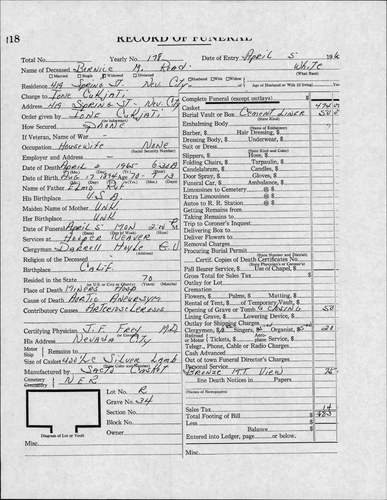 118
RECORD OF FUNERAL
Total No. Yearly No. 178 Date of Entry April 5 196
Name of Deceased Bernice M. Read White
Married Single Widowed Divorced (What Race)
Residence 419 Spring St. Nev. City Husband Wife Widow Age of Husband or Wife (if living) Yrs
Charge to Ione Curjati
Address 419 Spring St. Nev. City
Order given by Ione Curjati
How Secured Phone
If Veteran, Name of War
Occupation Housewife None
(Social Security Number)
Employer and Address
Date of Death April 2 1965 630 A
Date of Birth Aug 17 1894 Age 70 - 7 - 13
Name of Father Elmo Ruf
His Birthplace U.S.A
Maiden Name of Mother Unk
Her Birthplace Unk
Date of Funeral April 5 Mon 2 P
Services at Hooper Weaver
Clergyman Darrell Hoyle G.V
Religion of the Deceased
Birthplace Calif.
Resided in the State 70
(in U.S. or County or City) (Years)
Place of Death Miners Hosp
Cause of Death Aortic Aneurysm
Contributory Causes Arteriosclerosis
Certifying Physician J.F. Frey M.D
His Address Nevada City
Motor Ship Remains to
Size of Casket Silver Lamb
Manufactured by Casket
Cemetery N.E.R
Lot No. R
Grave No. 34
Section No.
Block No.
Owner
Diagram of Lot or Vault
Misc.
Complete Funeral (except outlays)
Burial Vault or Box Cement Liner
(State Kind)
Embalming Body
(Name of Embalmer)
Barber, Hair Dressing,
Dressing Body, Underwear,
Suit or Dress
(State Kind and Color)
Slippers, Hose,
Folding Chairs, Tarpaulin,
Candelabrum, Candles,
Door Spray, Gloves,
Funeral Car, Ambulance,
Limousines to Cemetery @
Limousines to Extra @
Autos to R. R. Station @
Getting Remains from
Taking Remains to
Trip to Coroner's Inquest
Delivering Box to
Deliver Flowers to
Removal Charges
Procuring Burial Permit
(State Number and District)
Certif. Copies of Death Certificates No.
Pall Bearer Service, Use of Chapel,
Gross Total for Sale Taxes
Outlay for Lot
Cremation
Flowers, Palms, Matting,
Rental of Tent, of Temporary Vault,
Opening of Grave or Tomb & Closing 50
Lining Grave, Lowering Device,
Outlay for Shipping Charges
Clergyman, Singers, Organist, 5 20
Railroad or Motor Tickets, Aero-plane Service
Telegr., Phone, Cable or Radio Charges
Cash Advanced
Out of town Funeral Director's Charges
Personal Service
Bronze Mt. View
line Death Notices in Papers
(Names of Newspapers)
Sales Tax
Total Footing of Bill
Less
Balance
Entered into Ledger, page or below.
Misc.